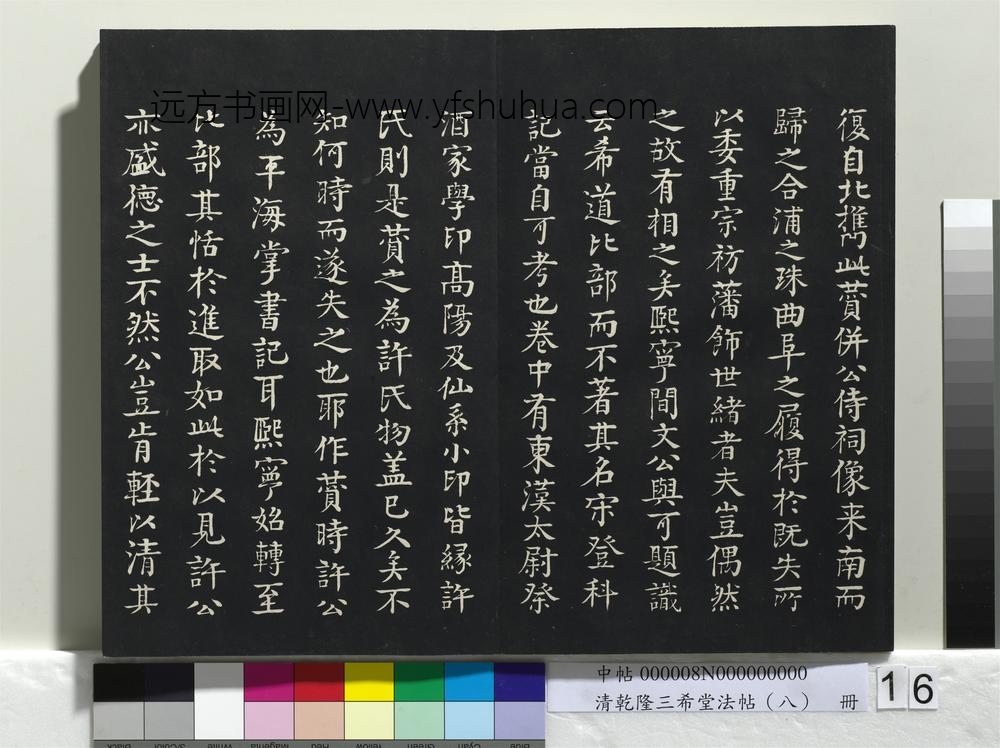 远方书画网-www.yfshuhua.com
復自北攜此蕡併公侍祠像来南而
歸之合浦之珠曲阜之履得於既失所
以委重宗祊藩飾世緒者夫豈偶然
之故有相之矣熙寧間文公與可題識
云希道比部而不著其名宋登科
記當自可考也卷中有東漢太尉祭
酒家學印高陽及仙系小印皆緣許
氏則是蕡之為許氏物盖已久矣不
知何時而遂失之也耶作蕡時許公
為平海掌書記耳熙寧始轉至
比部其恬於進取如此於以見許公
亦盛德之士不然公豈肯輕以清其
中帖 000008N000000000
清乾隆三希堂法帖（八） 冊
16
Black
3/Color
White
Magenta
Red
Yellow
Green
Cyan
Blue